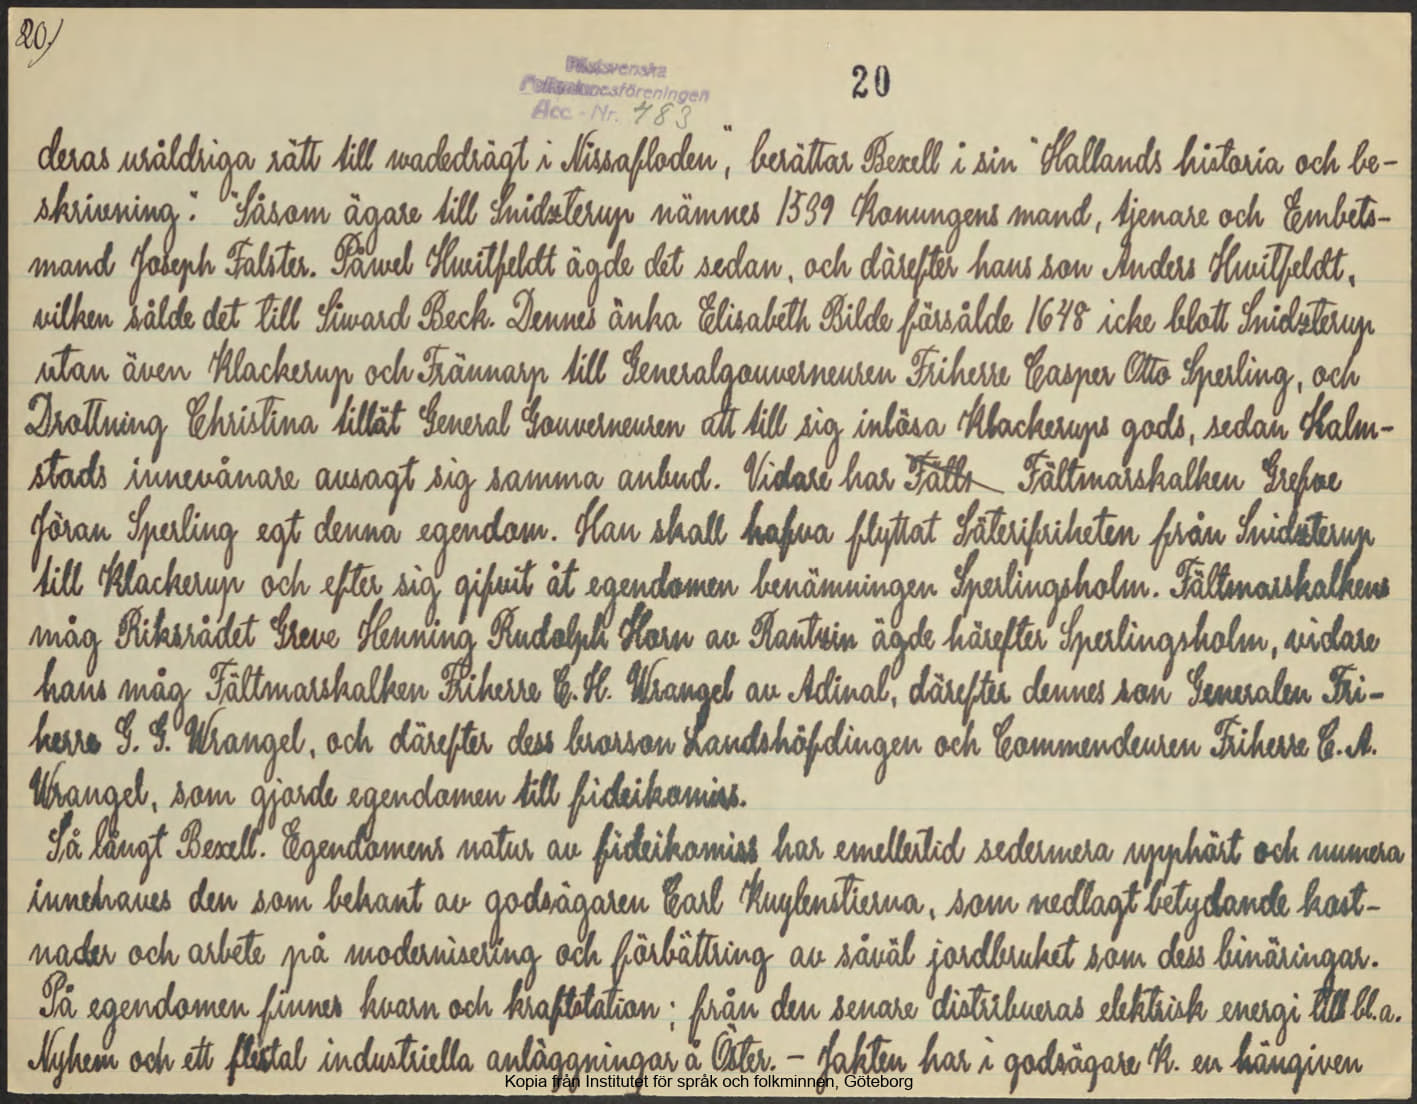 20)
20
Västsvenska
Folkminnesföreningen
Acc. - Nr. 483
deras uråldriga rätt till wadedrägt i Nissafloden", berättar Bexell i sin "Hallands historia och be-
skrivning". "Såsom ägare till Snidzterup nämnes 1539 Konungens mand, tjenare och Embets-
mand Joseph Falster. Påwel Hwitfeldt ägde det sedan, och därefter hans son Anders Hwitfeldt,
vilken sålde det till Siward Beck. Dennes änka Elisabeth Bilde försålde 1648 icke blott Snidzterup
utan även Klackerup och Frännarp till Generalgouverneuren Friherre Casper Otto Sperling, och
Drottning Christina tillät General Gouverneuren att till sig inlösa Klackerups gods, sedan Halm-
stads innevånare avsagt sig samma anbud. Vidare har Fältmarskalken Grefve
Jöran Sperling egt denna egendom. Han skall hafva flyttat Säterifriheten från Snidzterup
till Klackerup och efter sig gifvit åt egendomen benämningen Sperlingsholm. Fältmarskalkens
måg Riksrådet Greve Henning Rudolph Horn av Rantzin ägde härefter Sperlingsholm, vidare
hans måg Fältmarskalken Friherre C. H. Wrangel av Adinal, därefter dennes son Generalen Fri-
herre G. G. Wrangel, och därefter dess brorson Landshöfdingen och Commendeuren Friherre C. A.
Wrangel, som gjorde egendomen till fideikomiss.
Så långt Bexell. Egendomens natur av fideikomiss har emellertid sedermera upphört och numera
innehaves den som bekant av godsägaren Carl Kuylenstierna, som nedlagt betydande kost-
nader och arbete på modernisering och förbättring av såväl jordbruket som dess binäringar.
På egendomen finnes kvarn och kraftstation; från den senare distribueras elektrisk energi till bl.a.
Nyhem och ett flertal industriella anläggningar å Öster. - Jakten har i godsägare K. en hängiven
Kopia från Institutet för språk och folkminnen, Göteborg